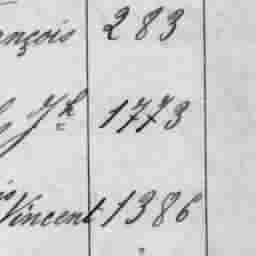 ançois 283
Jh 1773
is
Vincent 1386